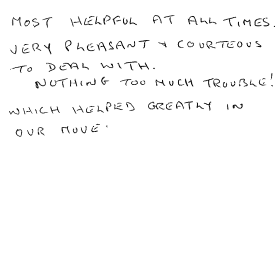 MOST HELPFUL AT ALL TIMES.
VERY PLEASANT & COURTEOUS
TO DEAL WITH.
NOTHING TOO MUCH TROUBLE!
WHICH HELPED GREATLY IN
OUR MOVE.